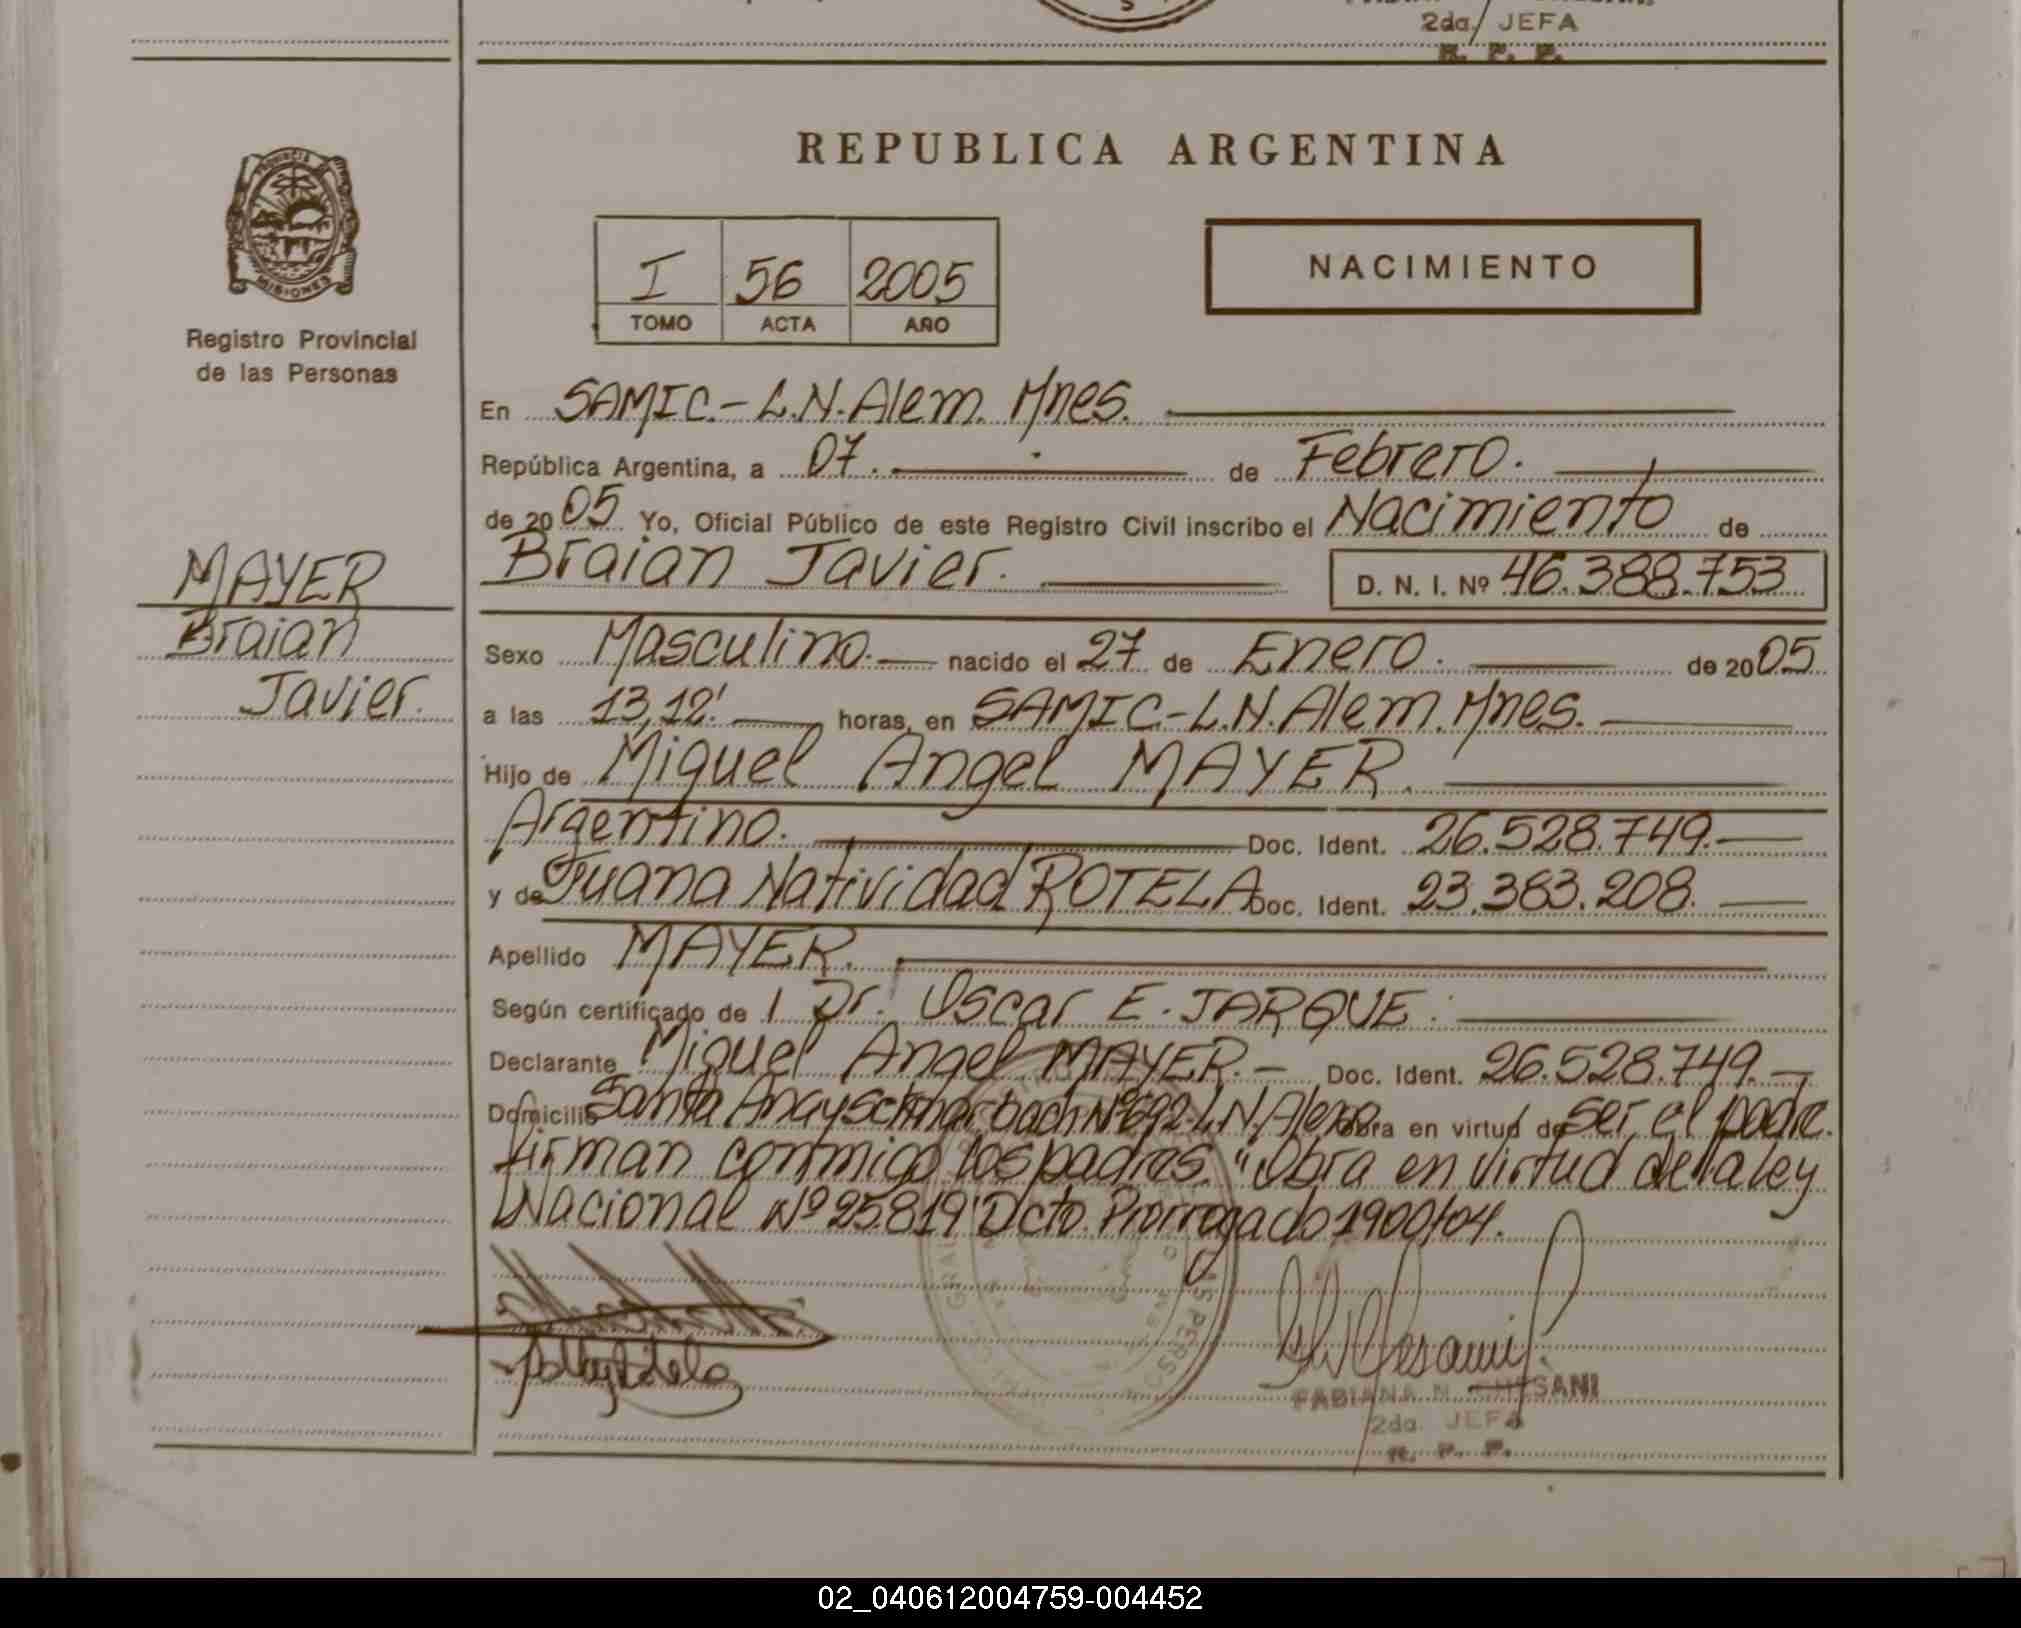 2da. JEFA
R. P. P.
REPUBLICA ARGENTINA
PROVINCIA
MISIONES
Registro Provincial
de las Personas
I 56 2005
TOMO ACTA AÑO
NACIMIENTO
En SAMIC.-L.N.Alem. Mnes.
República Argentina, a 07. de Febrero.
de 2005 Yo, Oficial Público de este Registro Civil inscribo el Nacimiento de
Braian Javier. D. N. I. Nº 46.388.753
MAYER
Braian
Javier.
Sexo Masculino. nacido el 27 de Enero. de 2005
a las 13,12' horas, en SAMIC-L.N.Alem.Mnes.
Hijo de Miguel Angel MAYER.
Argentino. Doc. Ident. 26.528.749.
y de Juana Natividad ROTELA Doc. Ident. 23.383.208.
Apellido MAYER.
Según certificado de l Dr. Oscar E. JARQUE.
Declarante Miguel Angel MAYER.- Doc. Ident. 26.528.749.-
Domicilio Santa Ana y Nº692-L.N.Alem Obra en virtud de ser el padre.
firman conmigo los padres. "Obra en virtud de la ley
Nacional Nº25819" Dcto. Prorrogado 1900/04.
FABIANA M. SANI
2da. JEFA
R. P. P.
02_040612004759-004452